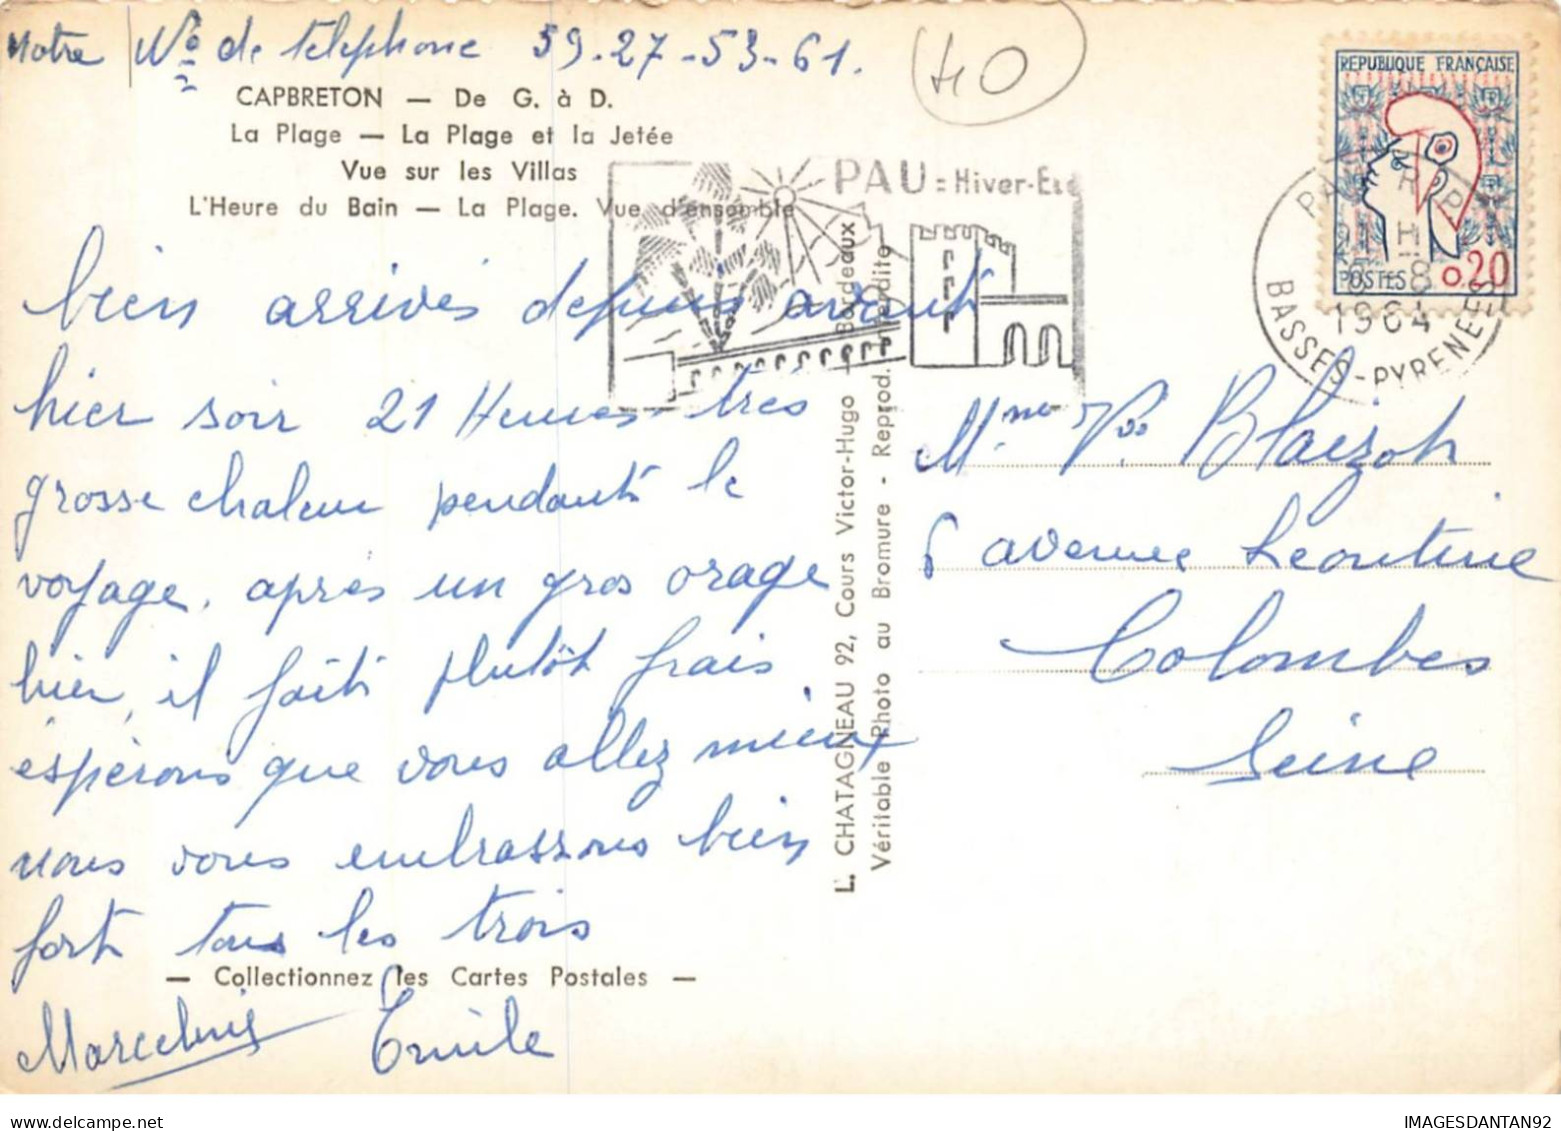 notre N° de telephone 59-27-53-61.
40
CAPBRETON — De G. à D.
La Plage — La Plage et la Jetée
Vue sur les Villas
L'Heure du Bain — La Plage. Vue d'ensemble
PAU = Hiver-Eté
REPUBLIQUE FRANÇAISE
POSTES 0.20
1964
BASSES-PYRENEES
bien arrivés depuis avant
hier soir 21 Heures très
grosse chaleur pendant le
voyage, après un gros orage
hier, il fait plutôt frais
espérons que vous allez mieux
nous vous embrassons bien
fort tous les trois
— Collectionnez les Cartes Postales —
Emile
L. CHATAGNEAU 92, Cours Victor-Hugo — Bordeaux
Véritable Photo au Bromure - Reprod. interdite
Mme Vve Blaizot
6 avenue Leontine
Colombes
Seine
IMAGESDANTAN92